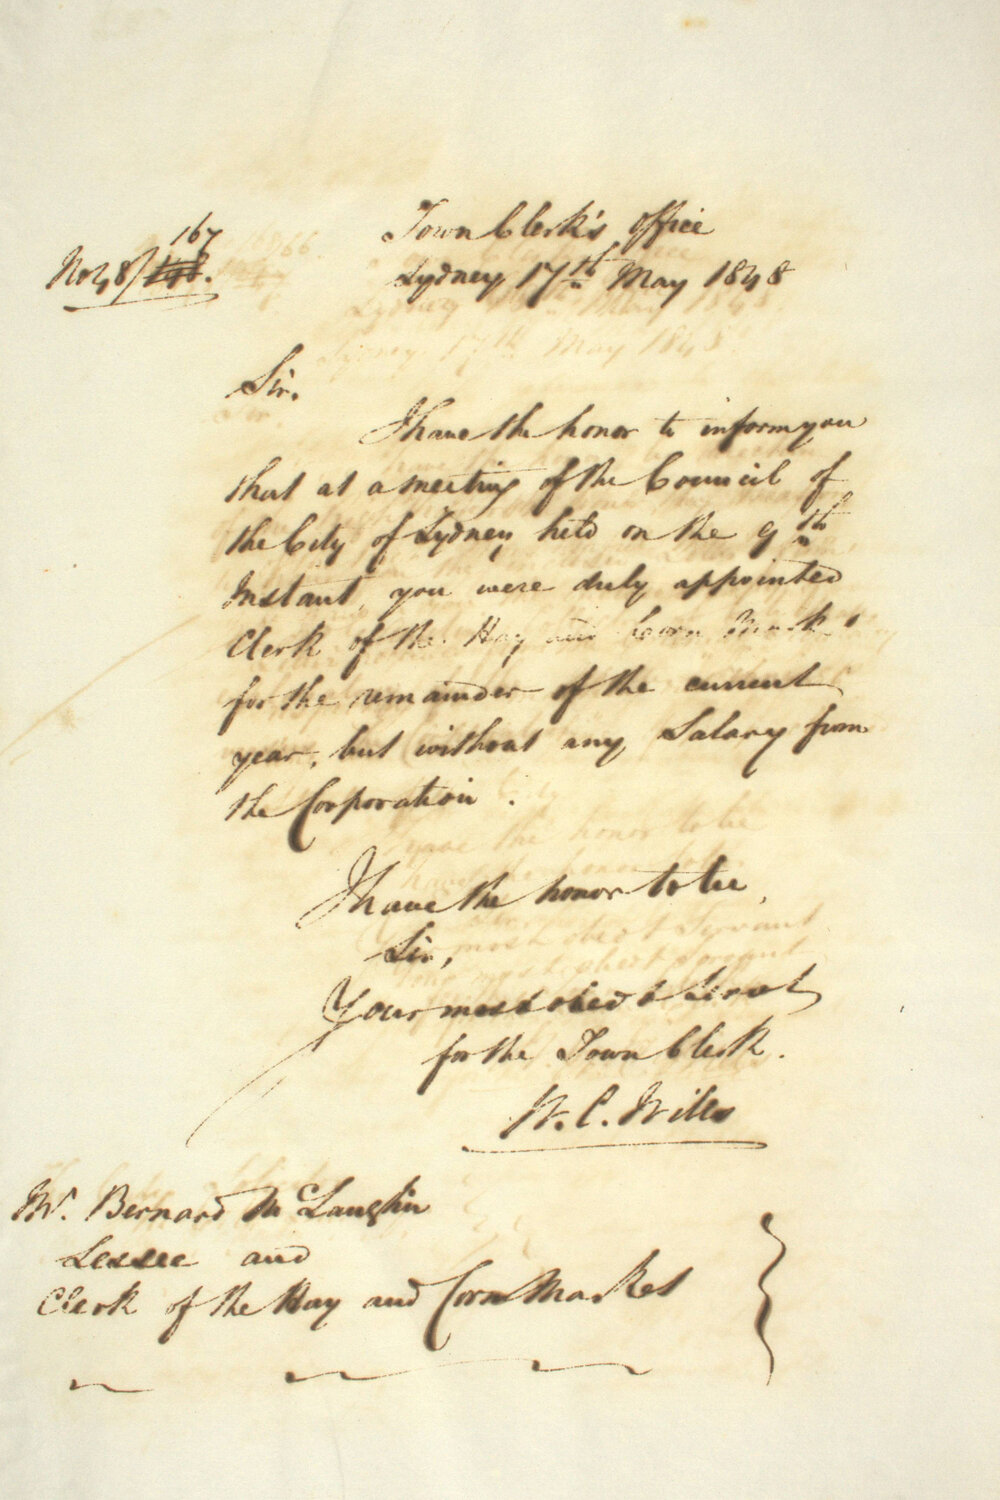 167
No 48/168.
Town Clerk's Office
Sydney, 17th May 1848
Sir.
I have the honor to inform you
that at a meeting of the Council of
the City of Sydney held on the 9th
Instant, you were duly appointed
Clerk of the Hay and Corn Market
for the remainder of the current
year, but without any Salary from
the Corporation.
I have the honor to be,
Sir,
Your most obedt Servant
for the Town Clerk.
W. C. Wills
Mr. Bernard McLaughlin
Lessee and
Clerk of the Hay and Corn Market